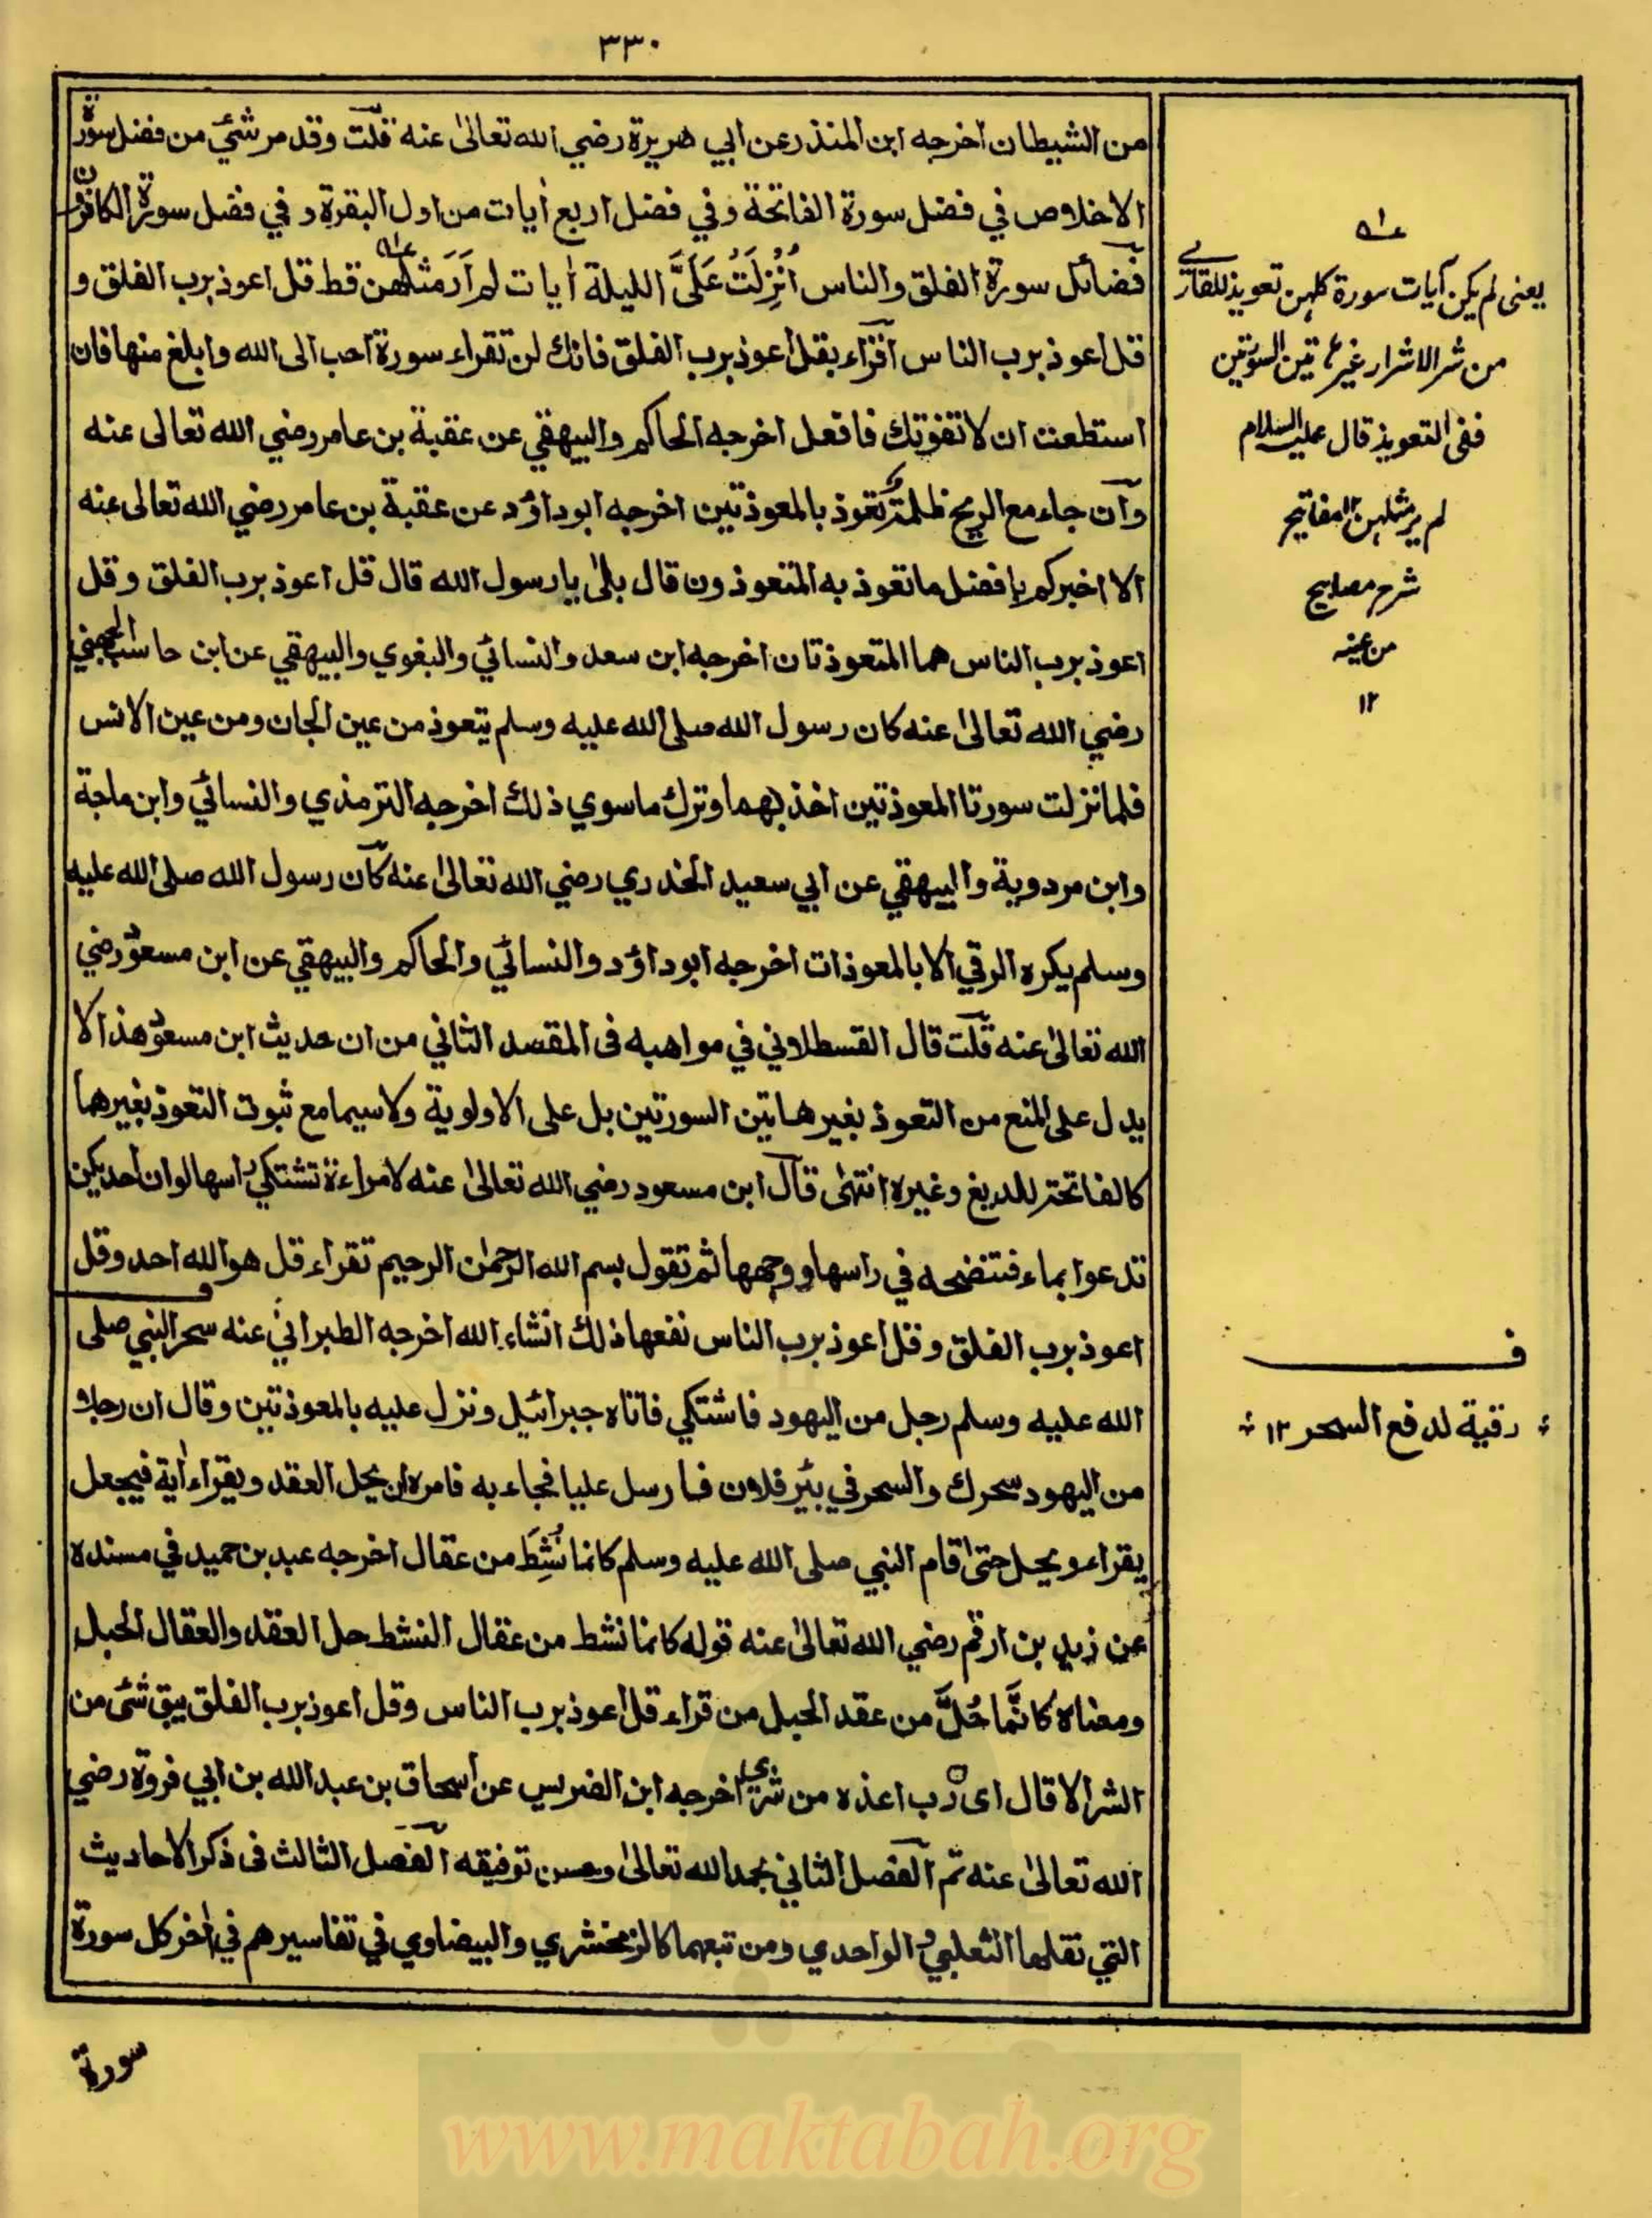 ٣٣٠
من الشيطان اخرجه ابن المنذر عن ابي هريرة رضي الله تعالى عنه قلت وقد مر شئ من فضل سورة
الاخلاص في فضل سورة الفاتحة وفي فضل اربع أيات من اول البقرة وفي فضل سورة الكافرون
فضائل سورة الفلق والناس اُنْزِلَتْ عَلَىَّ الليلة أيات لم اَرَ مثلهن قط قل اعوذ برب الفلق و
قل اعوذ برب الناس اقراء بقل اعوذ برب الفلق فانك لن تقراء سورة احب الى الله وابلغ منها فان
استطعت ان لا تفوتك فافعل اخرجه الحاكم والبيهقي عن عقبة بن عامر رضي الله تعالى عنه
وان جاء مع الريح ظلمة تعوذ بالمعوذتين اخرجه ابو داؤد عن عقبة بن عامر رضي الله تعالى عنه
الا اخبركم بافضل ما تعوذ به المتعوذون قال بلى يا رسول الله قال قل اعوذ برب الفلق وقل
اعوذ برب الناس هما المتعوذتان اخرجه ابن سعد والنسائي والبغوي والبيهقي عن ابن حابس الجهني
رضي الله تعالى عنه كان رسول الله صلى الله عليه وسلم يتعوذ من عين الجان ومن عين الانس
فلما نزلت سورتا المعوذتين اخذ بهما وترك ما سوي ذلك اخرجه الترمذي والنسائي وابن ماجة
وابن مردوية والبيهقي عن ابي سعيد الخدري رضي الله تعالى عنه كان رسول الله صلى الله عليه
وسلم يكره الرقي الا بالمعوذات اخرجه ابو داؤد والنسائي والحاكم والبيهقي عن ابن مسعود رضي
الله تعالى عنه قلت قال القسطلاني في مواهبه فى المقصد الثاني من ان حديث ابن مسعود هذا لا
يدل على المنع من التعوذ بغير هاتين السورتين بل على الاولوية ولا سيما مع ثبوت التعوذ بغيرهما
كالفاتحة للديغ وغيره انتهى قال ابن مسعود رضي الله تعالى عنه لامراءة تشتكي راسها لو ان احديكن
تدعوا بماء فتنضحه في راسها ووجهها ثم تقول بسم الله الرحمن الرحيم تقراء قل هو الله احد وقل
اعوذ برب الفلق وقل اعوذ برب الناس نفعها ذلك انشاء الله اخرجه الطبراني عنه سحر النبي صلى
الله عليه وسلم رجل من اليهود فاشتكي فاتاه جبرائيل ونزل عليه بالمعوذتين وقال ان رجلا
من اليهود سحرك والسحر في بئر فلان فارسل عليا فجاء به فامره ان يحل العقد ويقراء أية فيجعل
يقراء ويحل حتى قام النبي صلى الله عليه وسلم كانما نُشِطَ من عقال اخرجه عبد بن حميد في مسنده
عن زيد بن ارقم رضي الله تعالى عنه قوله كانما نشط من عقال النشط حل العقد والعقال الحبل
ومعناه كانَّما حُلَّ من عقد الحبل من قراء قل اعوذ برب الناس وقل اعوذ برب الفلق يبق شئ من
الشر الا قال اى رب اعذه من شري اخرجه ابن الضريس عن اسحاق بن عبد الله بن ابي فروة رضي
الله تعالى عنه تم الفصل الثاني بحمد الله تعالى وحسن توفيقه الفصل الثالث فى ذكر الاحاديث
التي نقلها الثعلبي والواحدي ومن تبعهما كالزمخشري والبيضاوي في تفاسيرهم في أخر كل سورة
سورة
يعنى لم يكن آيات سورة كلهن تعويذ للقارى
من شر الاشرار غير هاتين السورتين
ففى التعويذ قال عليه السلام
لم ير مثلهن المفاتيح
شرح مصابيح
من عينه
١٢
ف
رقية لدفع السحر ١٢
www.maktabah.org